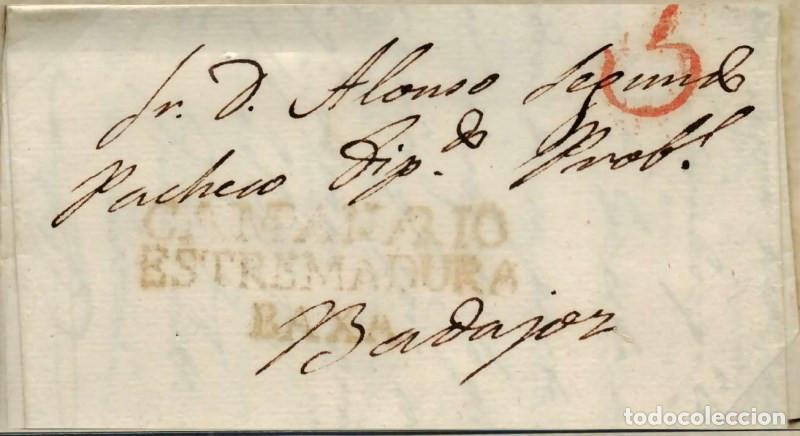 5
Sr. D. Alonso Segundo
Pacheco Dip.do Prob.l
CAMANARIO
ESTREMADURA
BAXA
Badajoz
todocoleccion